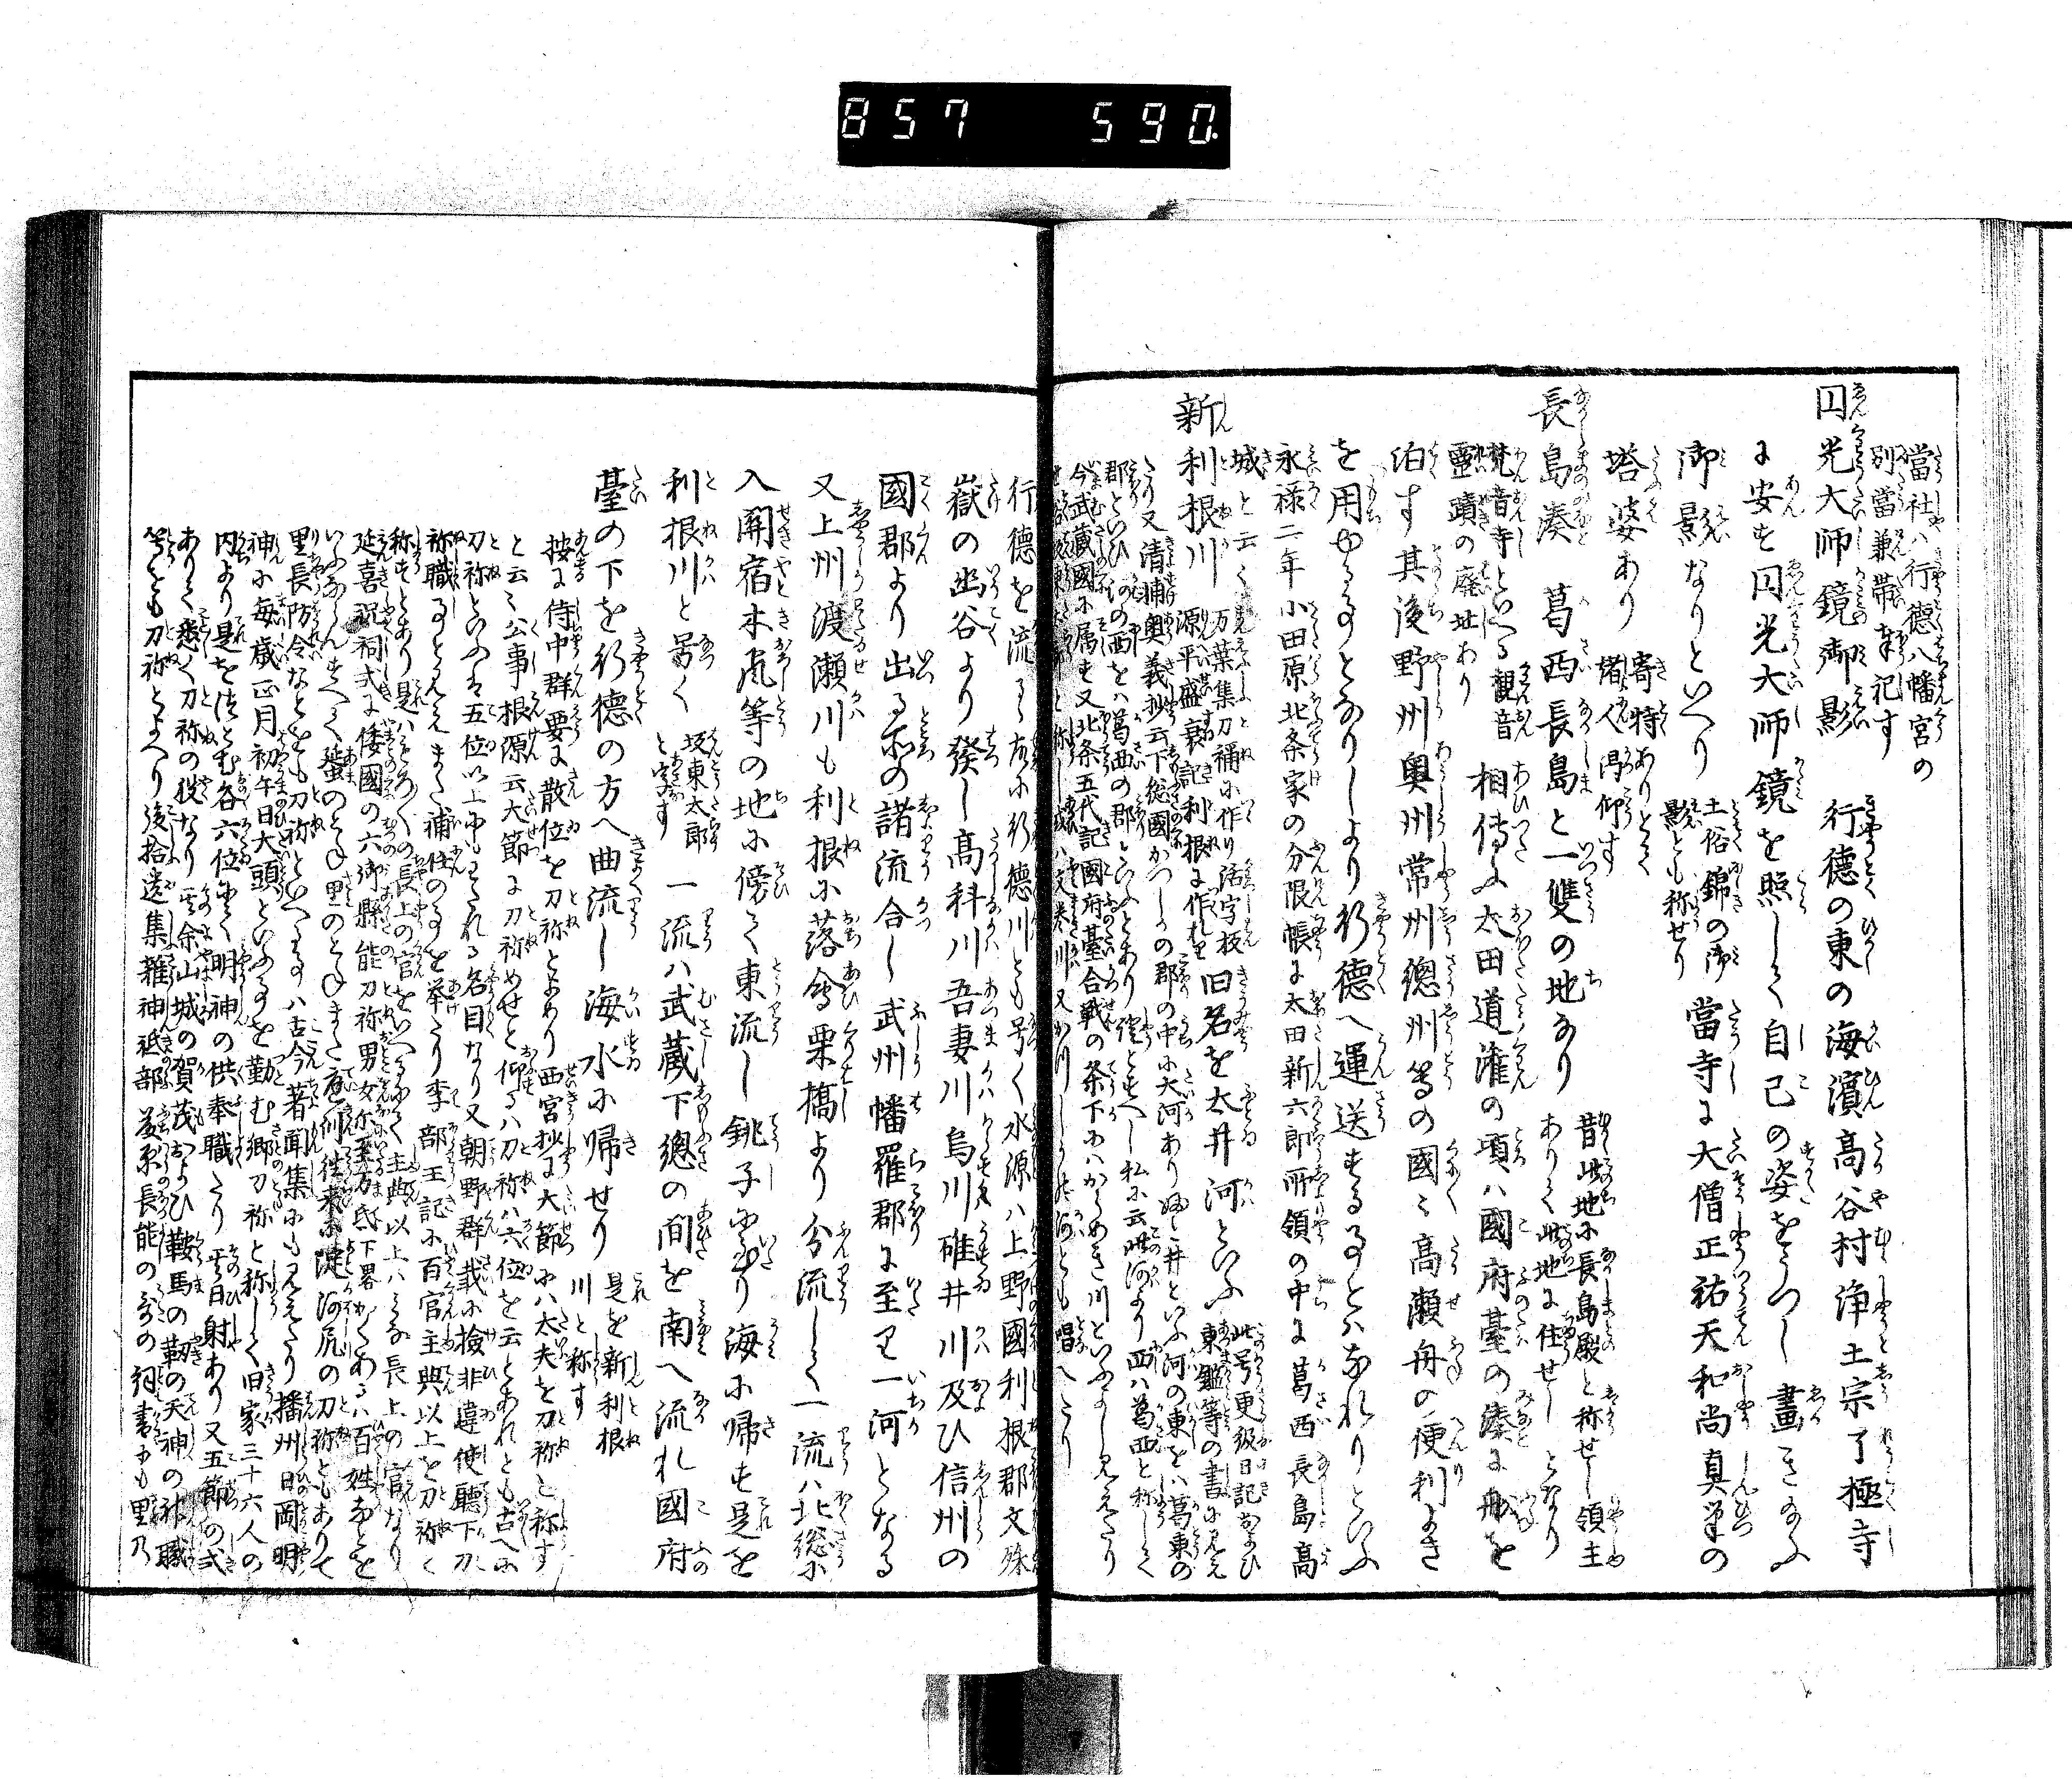 857 590.
當社ハ行德八幡宮の
別當兼帶奉祀す
円光大師鏡御影 行德の東の海濱高谷村浄土宗了極寺
に安す円光大師鏡を照しく自己の姿をうつし畫きたまふ
御影なりといへり 土俗錦の御影とも称せり 當寺に大僧正祐天和尚真筆の
塔婆あり 寄特ありとて諸人渇仰す
長島湊 葛西長島と一雙の地なり 昔此地に長島殿と称せし領主ありて此地に住せしとなり
梵音寺といへる観音靈蹟の廃址あり 相傳ふ太田道灌の頃ハ國府臺の湊に船を
泊す其後野州奥州常州總州等の國々高瀬舟の便利よき
を用ゆる事となりしより行德へ運送する事とハなれりといふ
永禄二年小田原北条家の分限帳に太田新六郎所領の中に葛西長島高
城と云く
新利根川 万葉集刀祢に作り活字板源平盛衰記利根に作れり 旧名を太井河といふ 此号更級日記および東鑑等の書に見え
たり又清補奥義抄云下総國かつしかの郡の中に大河ありふと井といふ河の東をハ葛東の
郡といひ河の西をハ葛西の郡といふとあり證とすへし私に云此河より西ハ葛西と称して
今武蔵國に属す又北条五代記國府臺合戦の条下にハからめき川といふよし見えたり
行德を流るる故に行德川とも号く水源ハ上野國利根郡文殊
嶽の幽谷より發し高科川吾妻川烏川碓井川及ひ信州の
國郡より出る所の諸流合し武州幡羅郡に至り一河となる
又上州渡瀬川も利根に落合栗橋より分流しく一流ハ北総に
入關宿木颪等の地に傍て東流し銚子に至り海に帰す是を
利根川と号く 坂東太郎と字す 一流ハ武蔵下總の間を南へ流れ國府
臺の下を行德の方へ曲流し海水に帰せり 是を新利根川と称す
按に侍中群要に散位を刀祢とよめり西宮抄に大節にハ太夫を刀祢と称す
と云々公事根源云大節に刀祢めせと仰るハ刀祢ハ六位を云とあれとも古へに
刀祢といふハ五位以上にもわたれる名目なり又朝野群載に撿非違使聽下刀
祢職事とみえまた補任の事を挙たり李部王記に百官主典以上を刀祢と
称すとあり是ハ
延喜祝祠式に倭國の六御縣能刀祢男女
里長防令なとをも刀祢といへる事ハ古今著聞集にもみえたり播州日岡明
神に毎歳正月初午日大頭といふ事を勤む郷刀祢と称しく旧家三十六人の
内より是をつとむ各六位にて明神の供奉職たり其日射あり又五節の式
ありて悉く刀祢の役なり其余山城の賀茂および鞍馬の靭の天神の神職
等をも刀祢とよへり後拾遺集雜神祇部藤原長能の哥の詞書にも里乃